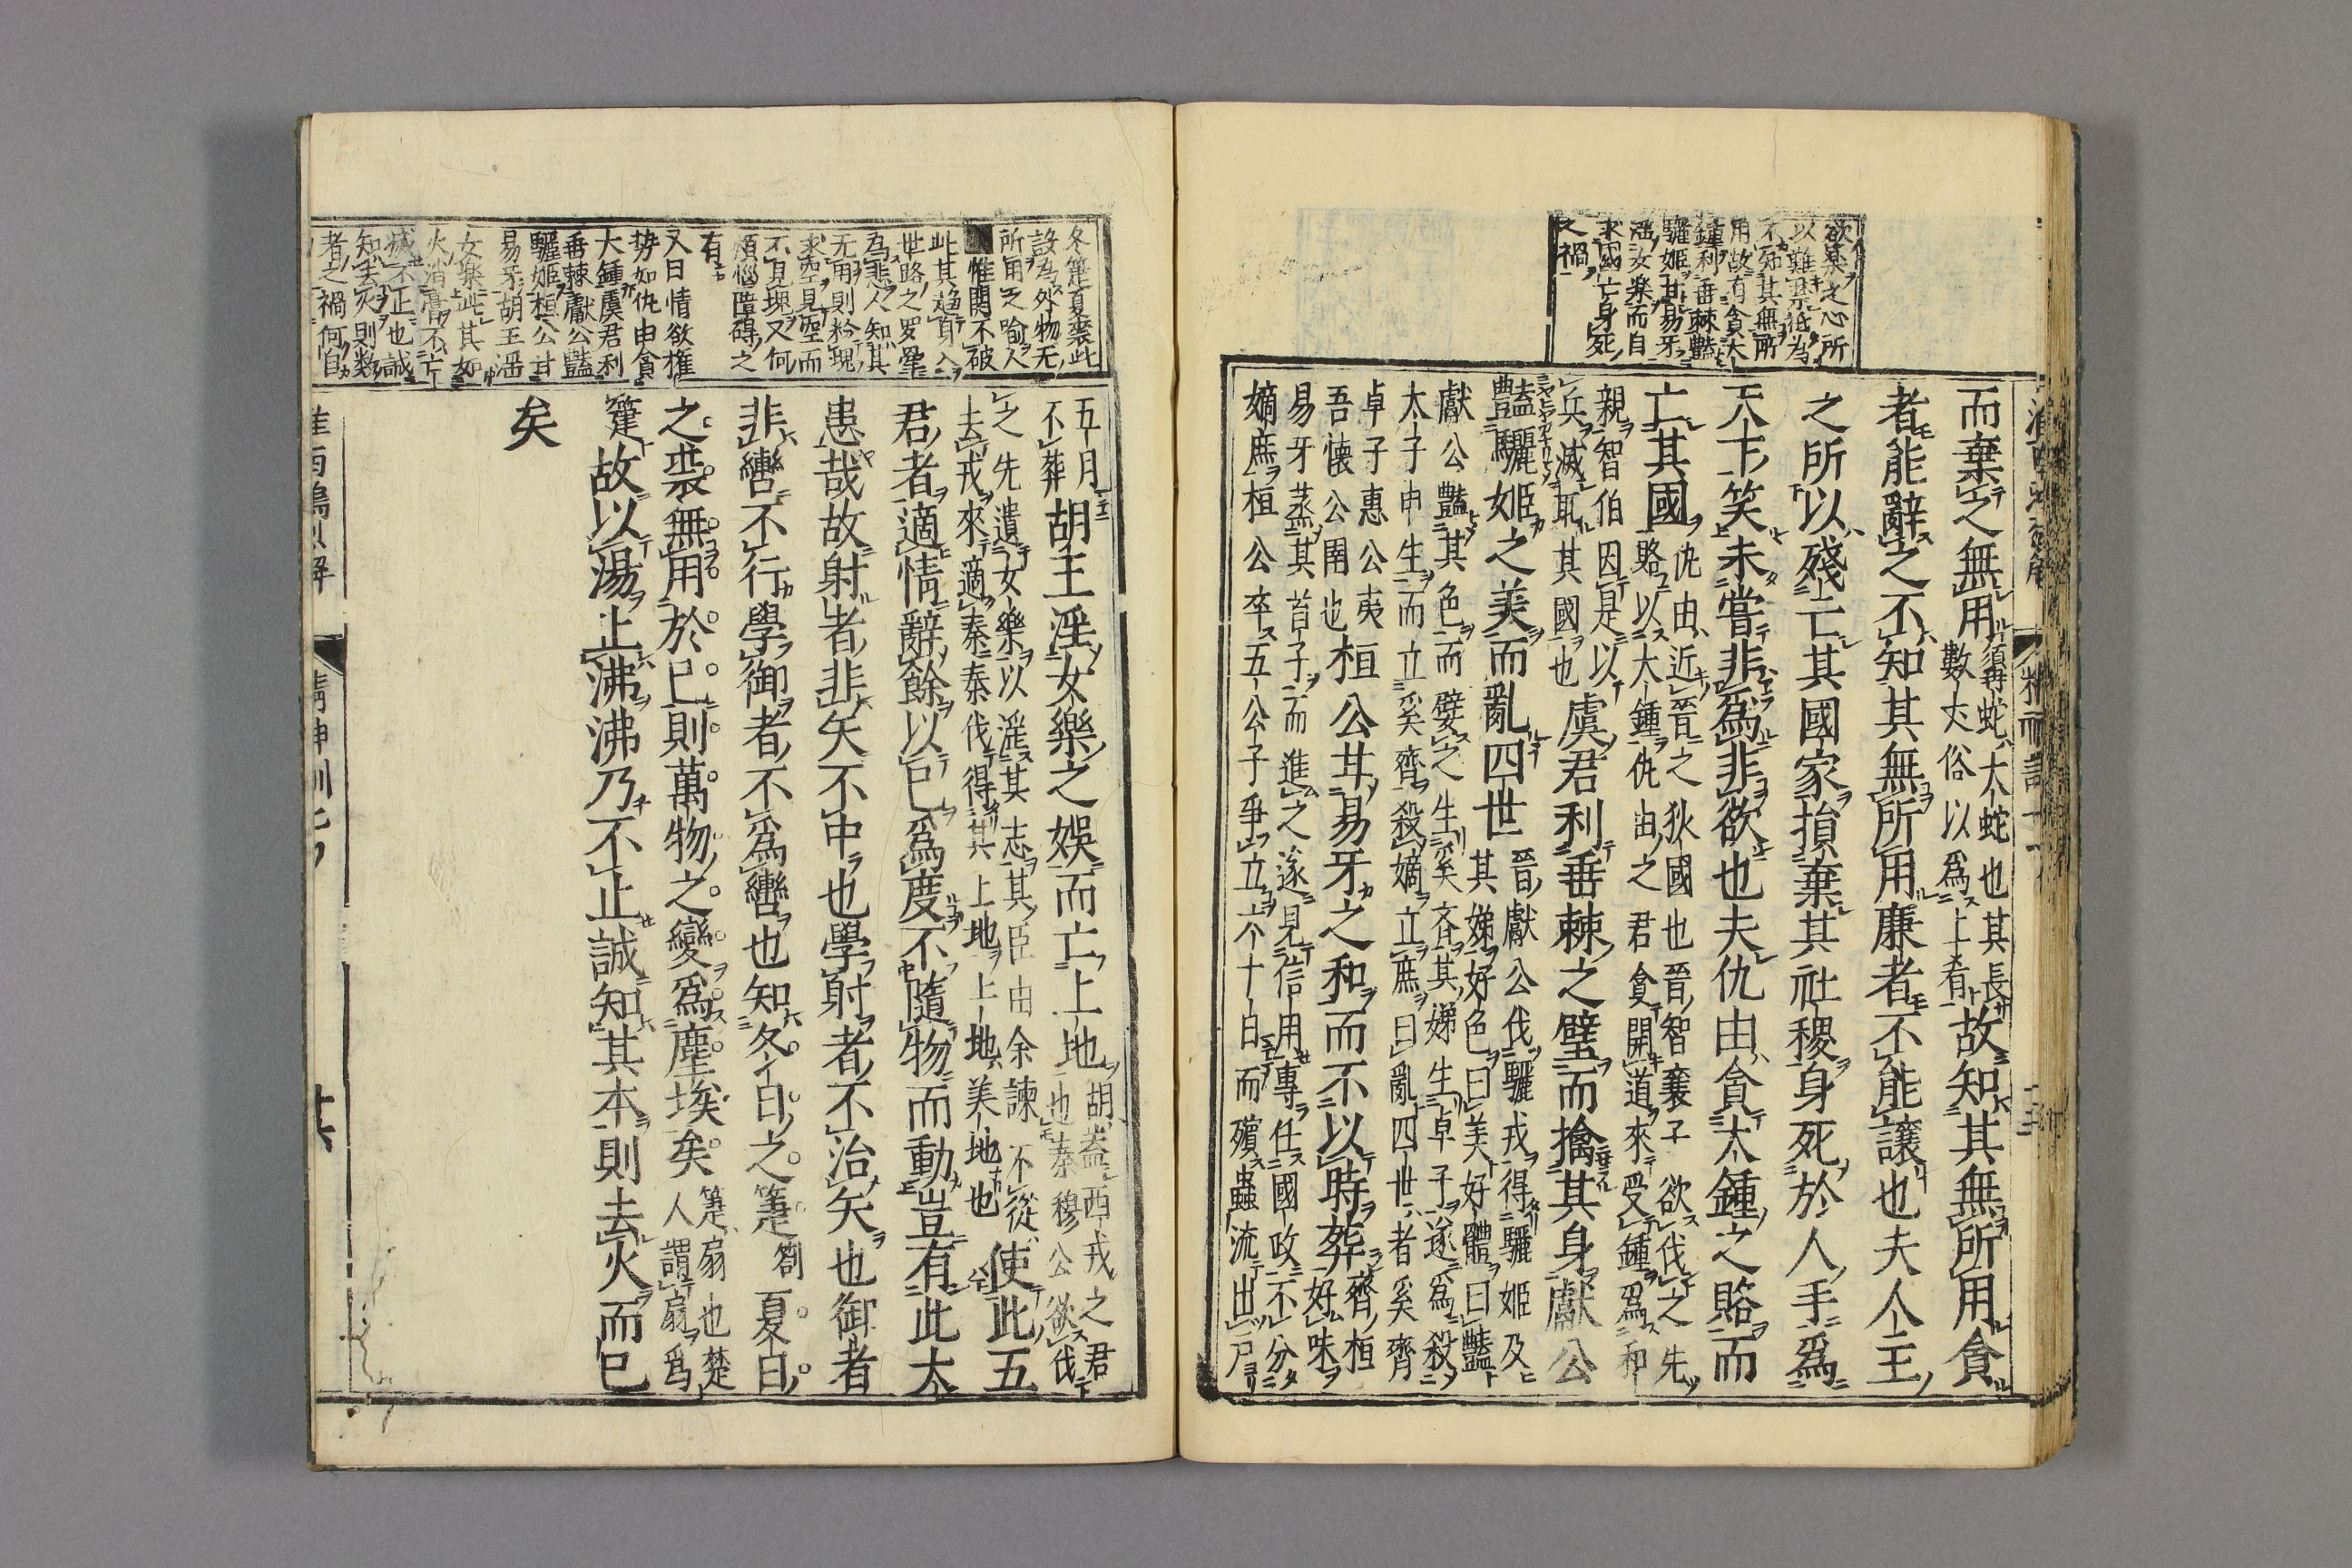 欲累之心所
以難累祗為
不知其無所
用故有貪大
鍾利垂棘豔
驪姬甘易牙
淫女樂而自
求國亡身死
之禍
精神訓
而棄之無用須冉蛇大蛇也其長數丈俗以爲上肴故知其無所用貪
者能辭之不知其無所用廉者不能讓也夫人主
之所以殘亡其國家損棄其社稷身死於人手爲
天下笑未嘗非爲非欲也夫仇由貪大鍾之賂而
亡其國仇由近晉之狄國也晉智襄子欲伐之先賂以大鍾仇由之君貪開道來受鍾爲和
親智伯因是以兵滅取其國也虞君利垂棘之璧而擒其身獻公
豔驪姬之美而亂四世晉獻公伐驪戎得驪姬及其娣好色曰美好體曰豔
獻公豔其色而嬖之生奚齊其娣生卓子遂爲殺太子申生而立奚齊殺嫡立庶曰亂四世者奚齊
卓子惠公夷吾懷公圉也桓公甘易牙之和而不以時葬齊桓好味
易牙蒸其首子而進之遂見信用專任國政不分嫡庶桓公卒五公子爭立六十日而殯蟲流出戶
冬箑夏裘此
設為外物无
所用之喻人
惟関不破
此其趋
世路之罗
為悲人知其
无用則
求空見空而
不見塊又何
煩惱障碍之
有
又曰情欲権
势如仇由貪
大鍾虞君利
垂棘獻公豔
驪姬桓公甘
易牙胡王淫
女樂此其如
火消膏不亡
滅不正也誠
知去火則数
者之禍何自
五月不葬胡王淫女樂之娛而亡上地胡蓋西戎之君也秦穆公欲伐
之先遺女樂以淫其志其臣由余諫不從去戎來適秦秦伐得其上地上地美地也使此五
君者適情辭餘以己爲度不隨物而動豈有此大
患哉故射者非矢不中也學射者不治矢也御者
非轡不行學御者不爲轡也知冬日之箑箚夏日
之裘無用於己則萬物之變爲塵埃矣箑扇也楚人謂扇爲
箑故以湯止沸沸乃不止誠知其本則去火而已
矣